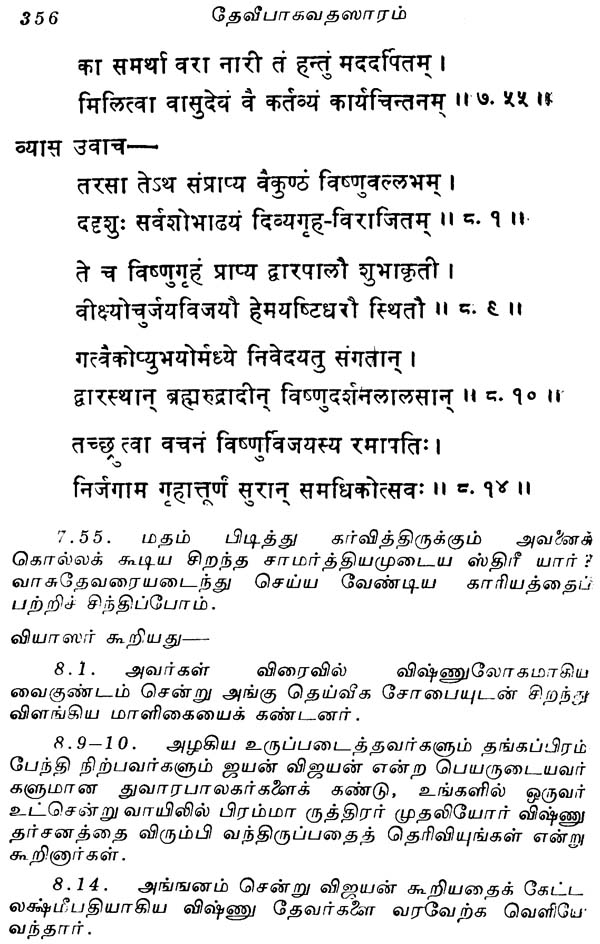 356
தேவீபாகவதஸாரம்
का समर्था वरा नारी तं हन्तुं मददर्पितम् ।
मिलित्वा वासुदेयं वै कर्तव्यं कार्यचिन्तनम् ॥ ७. ५५ ॥
व्यास उवाच—
तरसा तेऽथ संप्राप्य वैकुण्ठं विष्णुवल्लभम् ।
ददृशुः सर्वशोभाढयं दिव्यगृह-विराजितम् ॥ ८. १ ॥
ते च विष्णुगृहं प्राप्य द्वारपालौ शुभाकृती ।
वीक्ष्योचुर्जयविजयौ हेमयष्टिधरौ स्थितौ ॥ ८. ९ ॥
गत्वैकोप्युभयोर्मध्ये निवेदयतु संगतान् ।
द्वारस्थान् ब्रह्मरुद्रादीन् विष्णुदर्शनलालसान् ॥ ८. १० ॥
तच्छ्रुत्वा वचनं विष्णुर्विजयस्य रमापतिः ।
निर्जगाम गृहात्तूर्णं सुरान् समधिकोत्सवः ॥ ८. १४ ॥
7.55. மதம் பிடித்து கர்வித்திருக்கும் அவனைக்
கொல்லக் கூடிய சிறந்த சாமர்த்தியமுடைய ஸ்திரீ யார் ?
வாசுதேவரையடைந்து செய்ய வேண்டிய காரியத்தைப்
பற்றிச் சிந்திப்போம்.
வியாஸர் கூறியது—
8.1. அவர்கள் விரைவில் விஷ்ணுலோகமாகிய
வைகுண்டம் சென்று அங்கு தெய்வீக சோபையுடன் சிறந்து
விளங்கிய மாளிகையைக் கண்டனர்.
8.9–10. அழகிய உருப்படைத்தவர்களும் தங்கப்பிரம்
பேந்தி நிற்பவர்களும் ஜயன் விஜயன் என்ற பெயருடையவர்
களுமான துவாரபாலகர்களைக் கண்டு, உங்களில் ஒருவர்
உட்சென்று வாயிலில் பிரம்மா ருத்திரர் முதலியோர் விஷ்ணு
தர்சனத்தை விரும்பி வந்திருப்பதைத் தெரிவியுங்கள் என்று
கூறினார்கள்.
8.14. அங்ஙனம் சென்று விஜயன் கூறியதைக் கேட்ட
லக்ஷ்மீபதியாகிய விஷ்ணு தேவர்களை வரவேற்க வெளியே
வந்தார்.